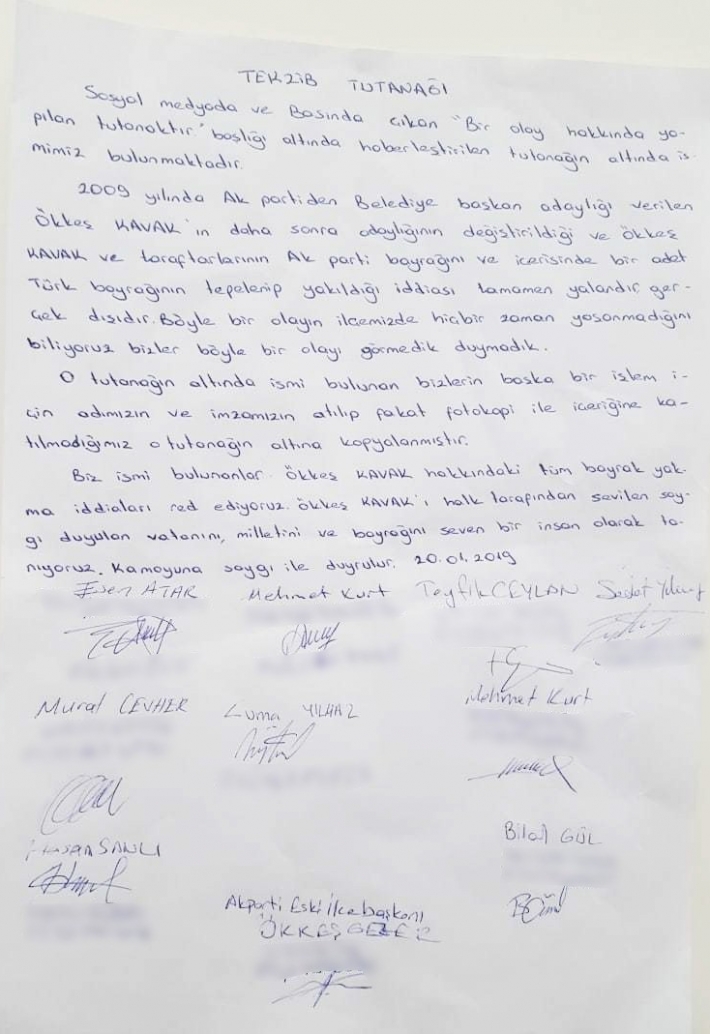 TEKZİB TUTANAĞI
Sosyal medyada ve Basında çıkan "Bir olay hakkında ya-
pılan tutanaktır" başlığı altında haberleştirilen tutanağın altında is-
mimiz bulunmaktadır.
2009 yılında Ak partiden Belediye başkan adaylığı verilen
Ökkeş KAVAK'ın daha sonra adaylığının değiştirildiği ve Ökkeş
KAVAK ve taraftarlarının Ak parti bayrağını ve içerisinde bir adet
Türk bayrağının tepelenip yakıldığı iddiası tamamen yalandır, ger-
çek dışıdır. Böyle bir olayın ilçemizde hiçbir zaman yaşanmadığını
biliyoruz bizler böyle bir olayı görmedik duymadık.
O tutanağın altında ismi bulunan bizlerin başka bir işlem i-
çin adımızın ve imzamızın atılıp fakat fotokopi ile içeriğine ka-
tılmadığımız o tutanağın altına kopyalanmıştır.
Biz ismi bulunanlar Ökkeş KAVAK hakkındaki tüm bayrak yak-
ma iddiaları red ediyoruz. Ökkeş KAVAK'ı halk tarafından sevilen say-
gı duyulan vatanını, milletini ve bayrağını seven bir insan olarak ta-
nıyoruz. Kamoyuna saygı ile duyrulur. 20.01.2019
ATAR Mehmet Kurt Teyfik CEYLAN
Murat CEVHER Cuma YILMAZ Mehmet Kurt
Hasan SANLI Bilal GÜL
Akparti Eski İlçe başkanı
ÖKKEŞ GEZER